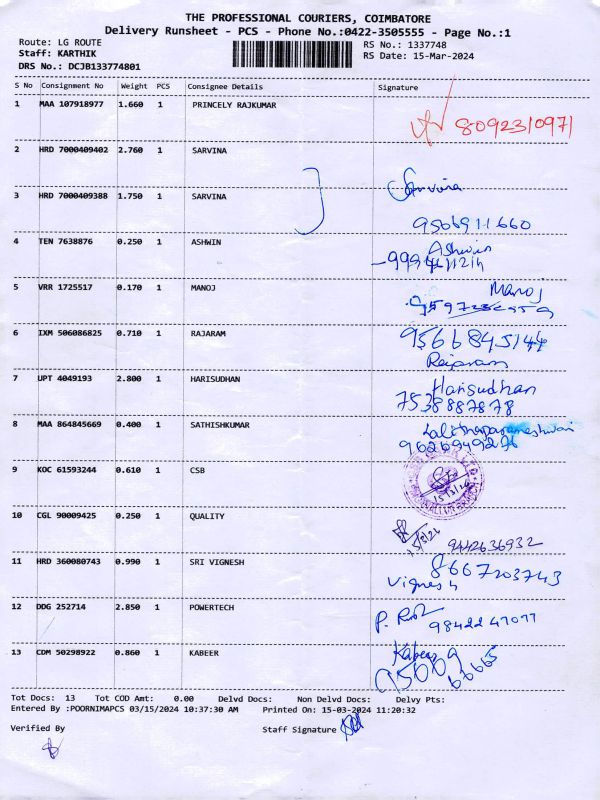 THE PROFESSIONAL COURIERS, COIMBATORE
Delivery Runsheet - PCS - Phone No.:0422-3505555 - Page No.:1
Route: LG ROUTE RS No.: 1337748
Staff: KARTHIK RS Date: 15-Mar-2024
DRS No.: DCJB133774801
S No Consignment No Weight PCS Consignee Details Signature
1 MAA 107918977 1.660 1 PRINCELY RAJKUMAR
8092310971
2 HRD 7000409402 2.760 1 SARVINA
Sarvina
3 HRD 7000409388 1.750 1 SARVINA
9506911660
4 TEN 7638876 0.250 1 ASHWIN Ashwin
5 VRR 1725517 0.170 1 MANOJ Manoj
6 IXM 506086825 0.710 1 RAJARAM 9566845144
Rajaram
7 UPT 4049193 2.800 1 HARISUDHAN Harisudhan
7538887878
8 MAA 864845669 0.400 1 SATHISHKUMAR Lalithaparameshwari
9626949276
9 KOC 61593244 0.610 1 CSB
15/3/24
10 CGL 90009425 0.250 1 QUALITY
15/3/24 9442636932
11 HRD 360080743 0.990 1 SRI VIGNESH 8667203743
Vignesh
12 DDG 252714 2.850 1 POWERTECH
9842247077
13 CDM 50298922 0.860 1 KABEER Kabeer
95009
66665
Tot Docs: 13 Tot COD Amt: 0.00 Delvd Docs: Non Delvd Docs: Delvy Pts:
Entered By :POORNIMAPCS 03/15/2024 10:37:30 AM Printed On: 15-03-2024 11:20:32
Verified By Staff Signature